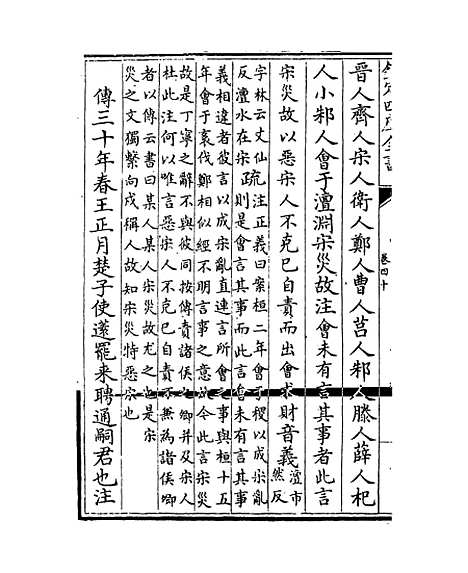 晉人齊人宋人衛人鄭人曹人莒人邾人滕人薛人杞
人小邾人會于澶淵宋災故注會未有言其事者此言
宋災故以惡宋人不克已自責而出會求財音義澶市
然反
字林云丈仙
反澶水在宋疏注正義曰案桓二年會于稷以成宋亂
則是會言其事而此言會未有言其事
義相違者彼言以成宋亂直連言所會之事與桓十五
年會于袲伐鄭相似經不明言事之意故今此言宋災
故是丁寧之辭不與彼同按傳責諸侯之卿并及宋人
杜此注何以唯言惡宋人不克已自責不兼為諸侯卿
者以傳云書曰某人某人宋災故尤之也是宋
災之文獨繫向戌稱人故知宋災特惡宋也
傳三十年春王正月楚子使薳罷来聘通嗣君也注
卷四十